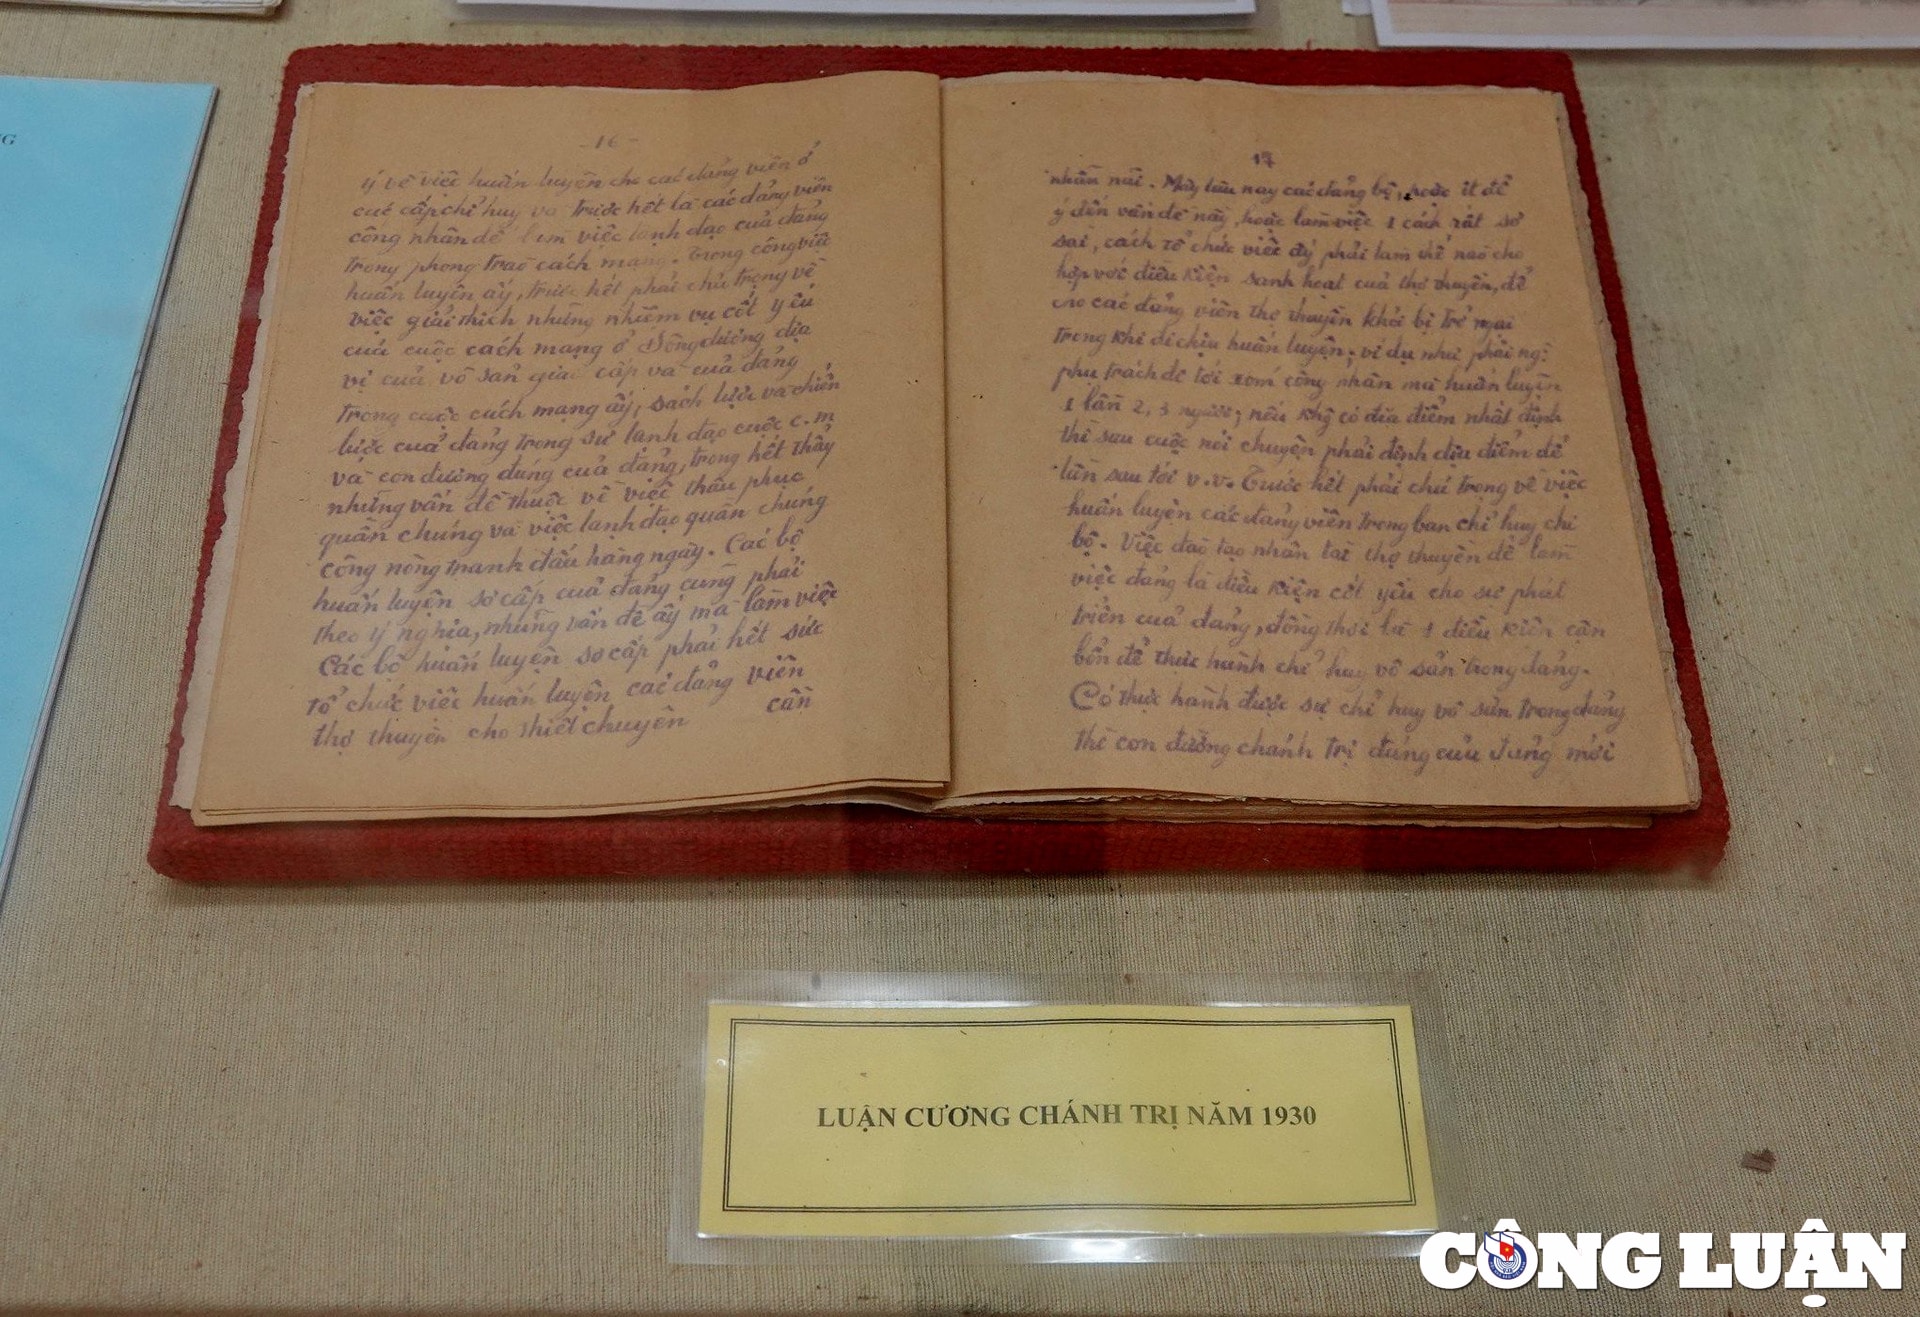 NG
- 16 -
ý về việc huấn luyện cho các đảng viên ở
các cấp chỉ huy và trước hết là các đảng viên
công nhân để làm việc lãnh đạo của đảng
trong phong trào cách mạng. Trong công việc
huấn luyện ấy, trước hết phải chú trọng về
việc giải thích những nhiệm vụ cốt yếu
của cuộc cách mạng ở Đông dương địa
vị của vô sản giai cấp và của đảng
trong cuộc cách mạng ấy, sách lược và chiến
lược của đảng trong sự lãnh đạo cuộc c.m
và con đường dung của đảng, trong hết thảy
những vấn đề thuộc về việc thâu phục
quần chúng và việc lãnh đạo quần chúng
công nông tranh đấu hàng ngày. Các bộ
huấn luyện sơ cấp của đảng cũng phải
theo ý nghĩa, những vấn đề ấy mà làm việc
Các bộ huấn luyện sơ cấp phải hết sức
tổ chức việc huấn luyện các đảng viên
thợ thuyền cho thiết chuyên cần
17
nhẫn nại. Mấy lâu nay các đảng bộ, hoặc ít để
ý đến vấn đề này, hoặc làm việc 1 cách rất sơ
sài, cách tổ chức việc ấy phải làm thế nào cho
hợp với điều kiện sanh hoạt của thợ thuyền, để
cho các đảng viên thợ thuyền khỏi bị trở ngại
trong khi đi chịu huấn luyện; ví dụ như phải ng:
phụ trách để tới xóm công nhân mà huấn luyện
1 lần 2, 3 người; nếu khg có địa điểm nhất định
thì sau cuộc nói chuyện phải định địa điểm để
lần sau tới v.v. Trước hết phải chú trọng về việc
huấn luyện các đảng viên trong ban chỉ huy chi
bộ. Việc đào tạo nhân tài thợ thuyền để làm
việc đảng là điều kiện cốt yếu cho sự phát
triển của đảng, đồng thời là 1 điều kiện căn
bổn để thực hành chỉ huy vô sản trong đảng.
Có thực hành được sự chỉ huy vô sản trong đảng
thì con đường chánh trị đúng của đảng mới
LUẬN CƯƠNG CHÁNH TRỊ NĂM 1930
CÔNG LUẬN